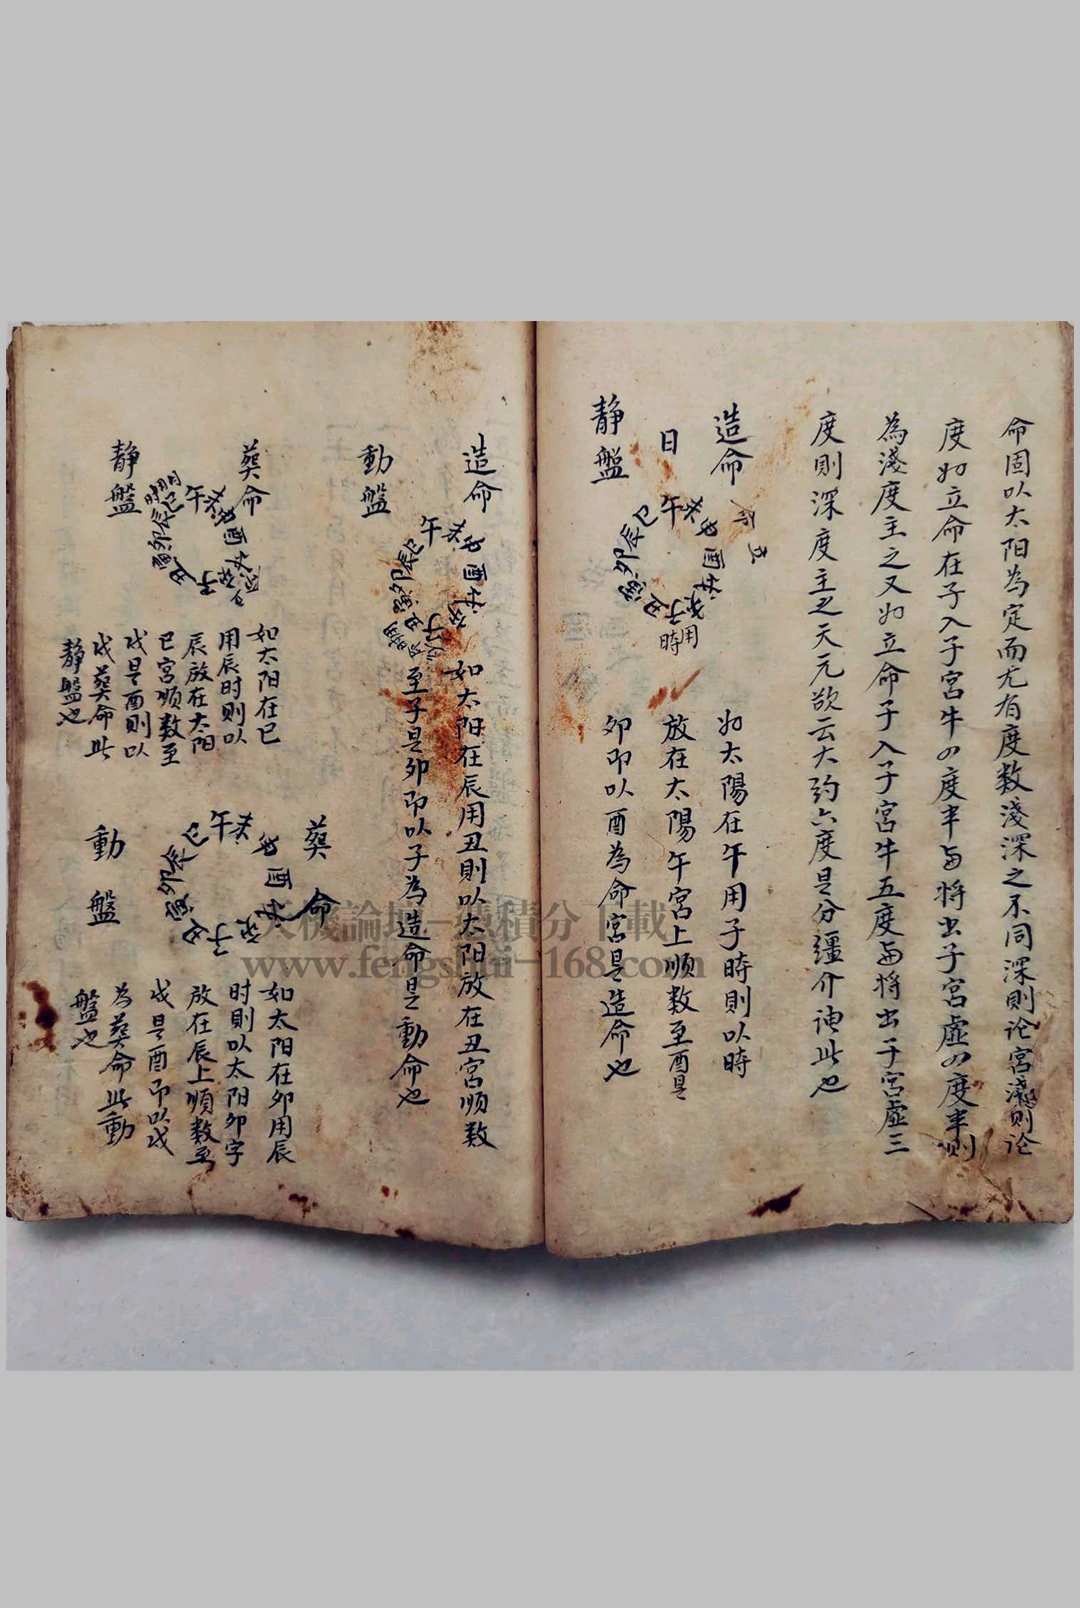 命固以太阳為定而尤有度数淺深之不同深則论宮淺則论
度如立命在子入子宮牛四度半与将出子宮虛四度半則
為淺度主之又如立命子入子宮牛五度与将出子宮虛三
度則深度主之天元歌云大約六度是分疆介谏此也
造命
立
命
日
静盤
午未申酉戌亥子丑寅卯辰巳
用
時
如太陽在午用子時則以時
放在太陽午宮上順数至酉是
卯即以酉為命宮是造命也
造命
動盤
午未申酉戌亥子丑寅卯辰巳
如太阳在辰用丑則以太阳放在丑宮順数
至子是卯即以子為造命是動命也
葵命
静盤
午未申酉戌亥子丑寅卯辰巳
如太阳在巳
用辰时則以
辰放在太阳
巳宮順数至
戌是酉則以
戌葵命此
静盤也
葵命
動盤
午未申酉戌亥子丑寅卯辰巳
如太阳在卯用辰
时則以太阳卯字
放在辰上順数至
戌是酉即以戌
為葵命此動
盤也
天機論壇-憑積分下載
www.fengshui-168.com